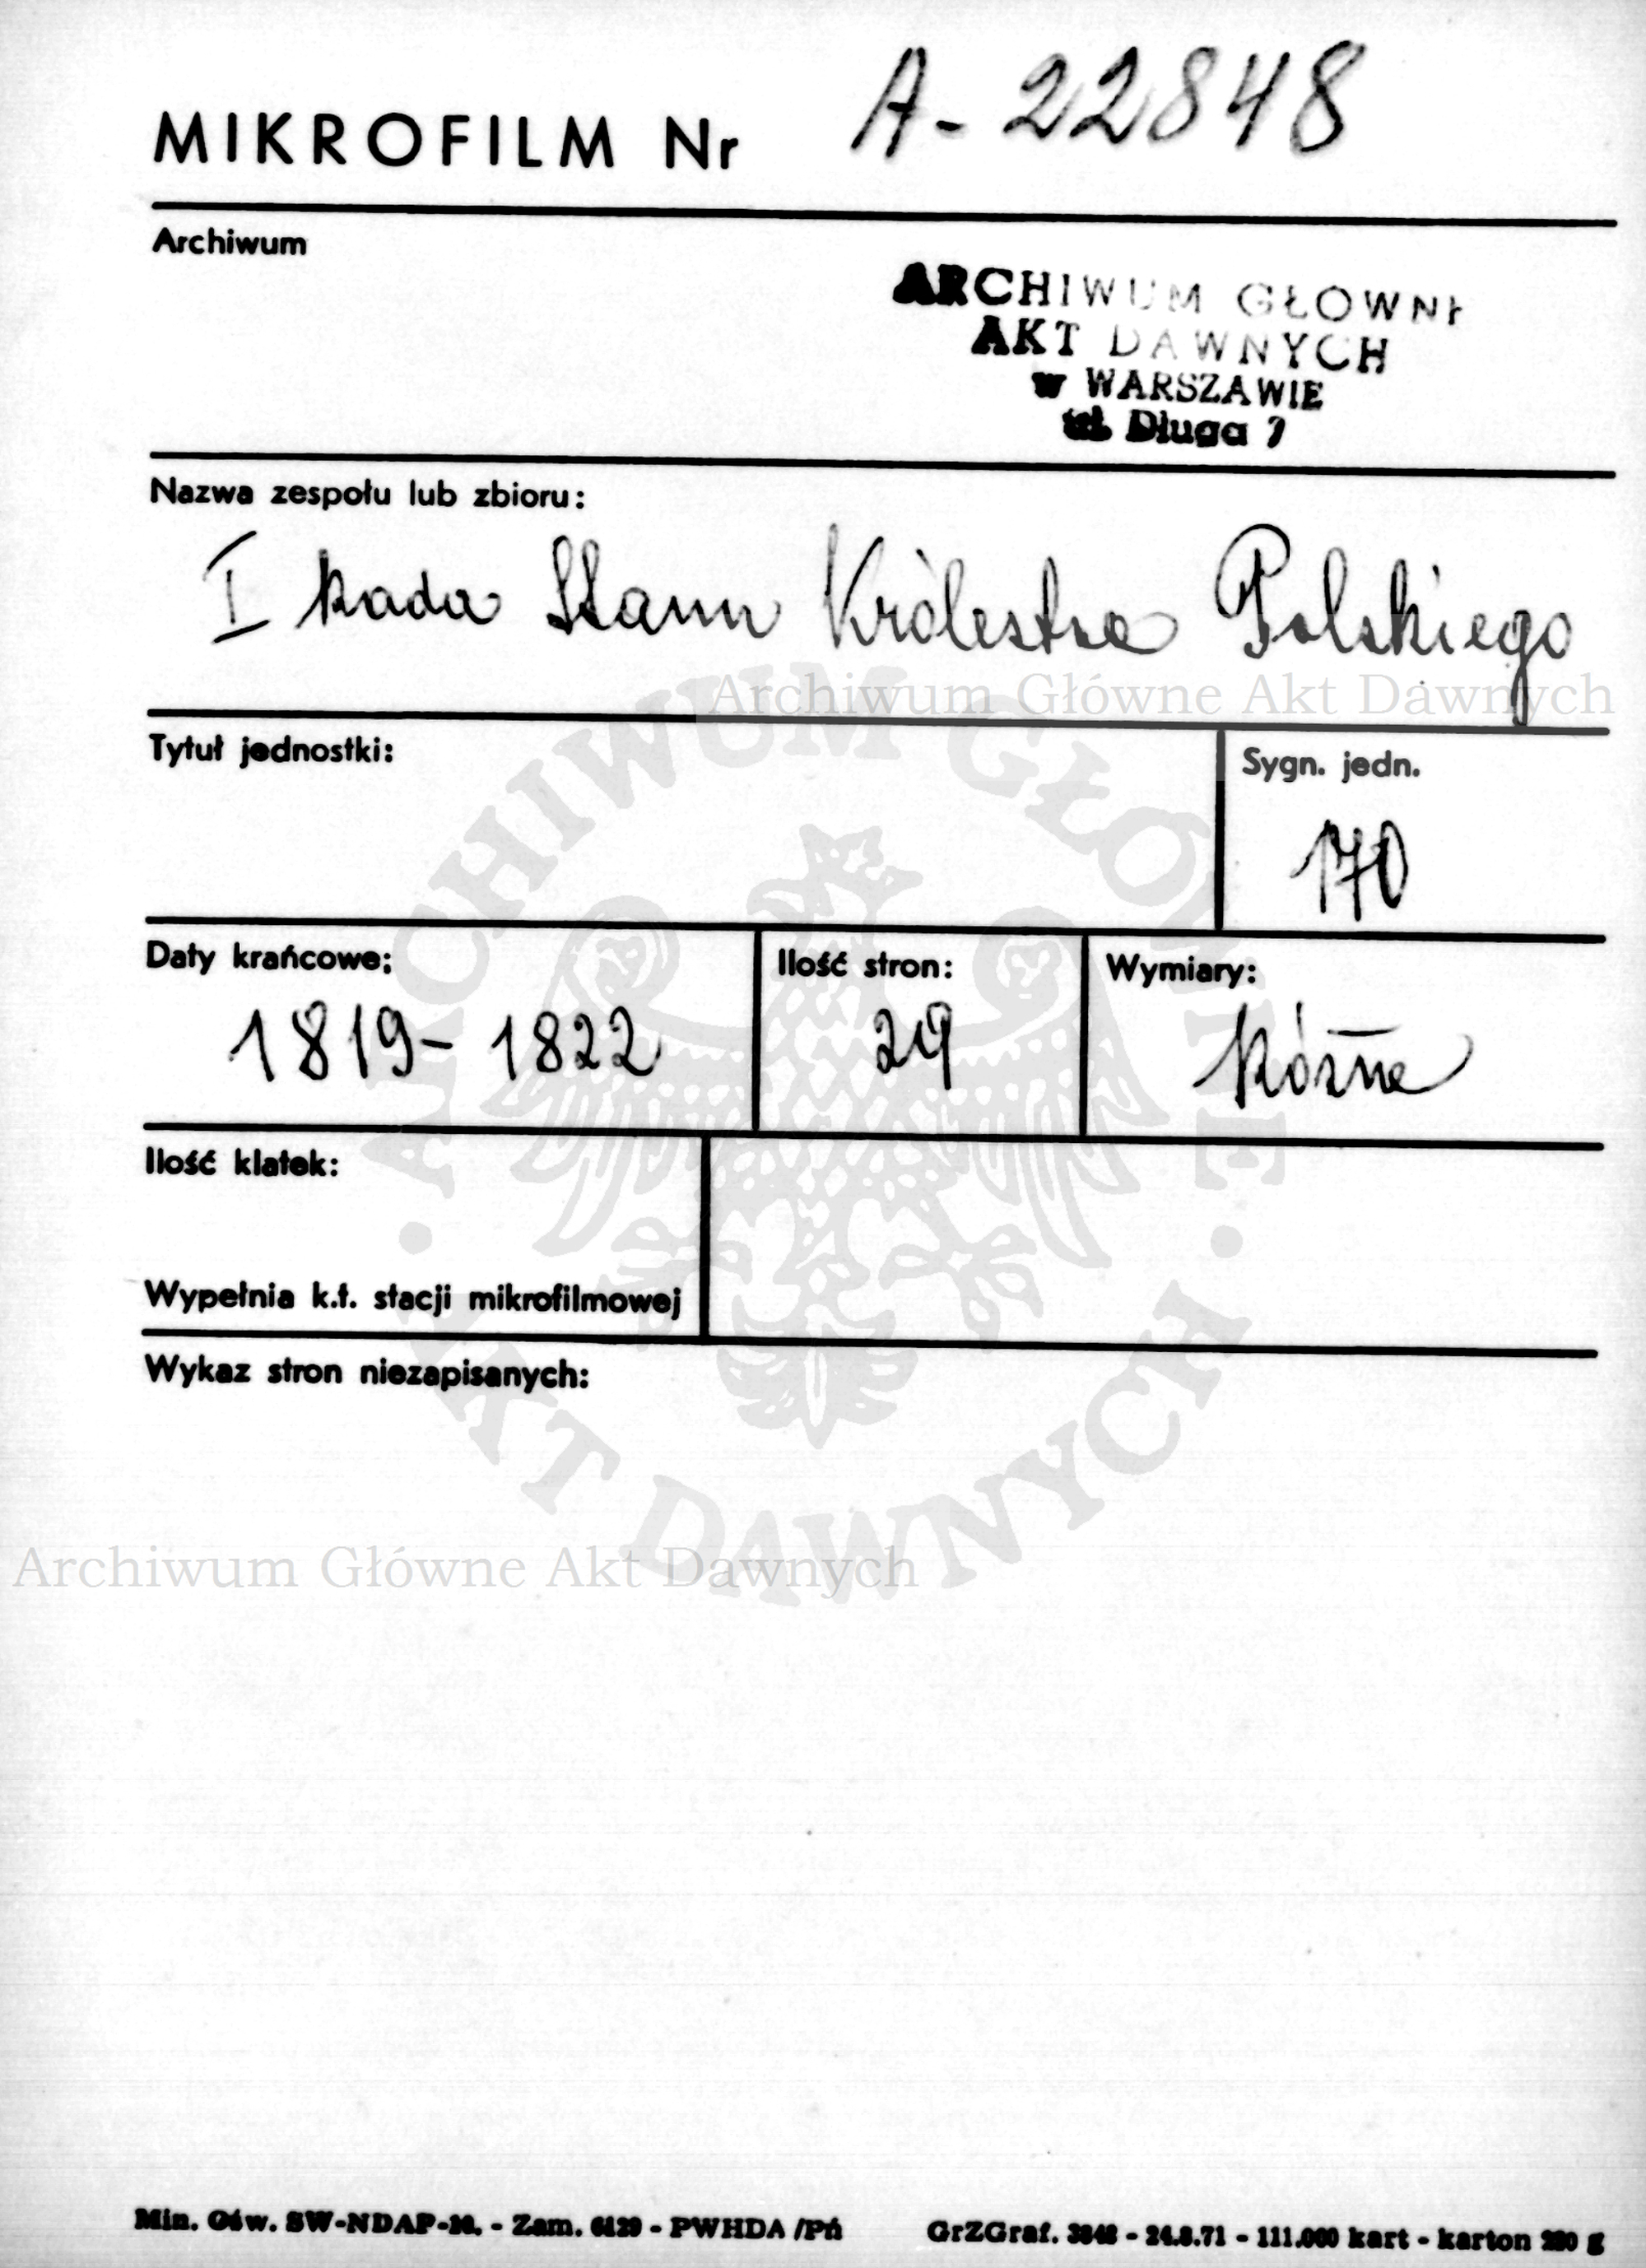 MIKROFILM Nr A-22848
Archiwum
ARCHIWUM GŁOWNE
AKT DAWNYCH
w WARSZAWIE
ul. Długa 7
Nazwa zespołu lub zbioru:
I Rada Stanu Królestwa Polskiego
Archiwum Główne Akt Dawnych
Tytuł jednostki:
Sygn. jedn.
170
Daty krańcowe:
1819-1822
Ilość stron:
29
Wymiary:
Różne
Ilość klatek:
Wypełnia k.t. stacji mikrofilmowej
Wykaz stron niezapisanych:
ARCHIWUM GŁÓWNE
AKT DAWNYCH
Archiwum Główne Akt Dawnych
Min. Ośw. SW-NDAP- - Zam. 6129 - PWHDA /Pń
GrZGraf. - 24.8.71 - 111.000 kart - karton g